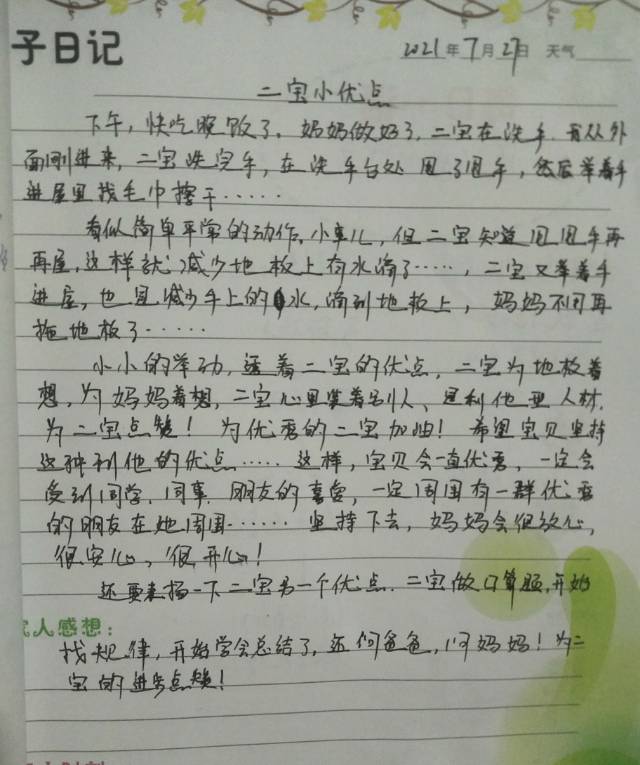 子日记
2021年7月27日 天气
二宝小优点
下午,快吃晚饭了。妈妈做好了,二宝在洗手。首从外
面刚进来,二宝洗完手,在洗手台处甩了甩手,然后举着手
进屋里找毛巾擦干……
看似简单平常的动作,小事儿,但二宝知道甩甩手再
再屋,这样就减少地板上有水滴了……,二宝又举着手
进屋,也是减少手上的水,滴到地板上,妈妈不用再
拖地板了……
小小的举动,透着二宝的优点,二宝为地板着
想,为妈妈着想,二宝心里装着别人、是利他型人材,
为二宝点赞!为优秀的二宝加油!希望宝贝坚持
这种利他的优点……这样,宝贝会一直优秀,一定会
受到同学、同事、朋友的喜爱,一定周围有一群优秀
的朋友在她周围……坚持下去,妈妈会很放心,
很安心,很开心!
还要表扬一下二宝另一个优点,二宝做口算题,开始
人感想:
找规律,开始学会总结了,还问爸爸,问妈妈!为二
宝的进步点赞!